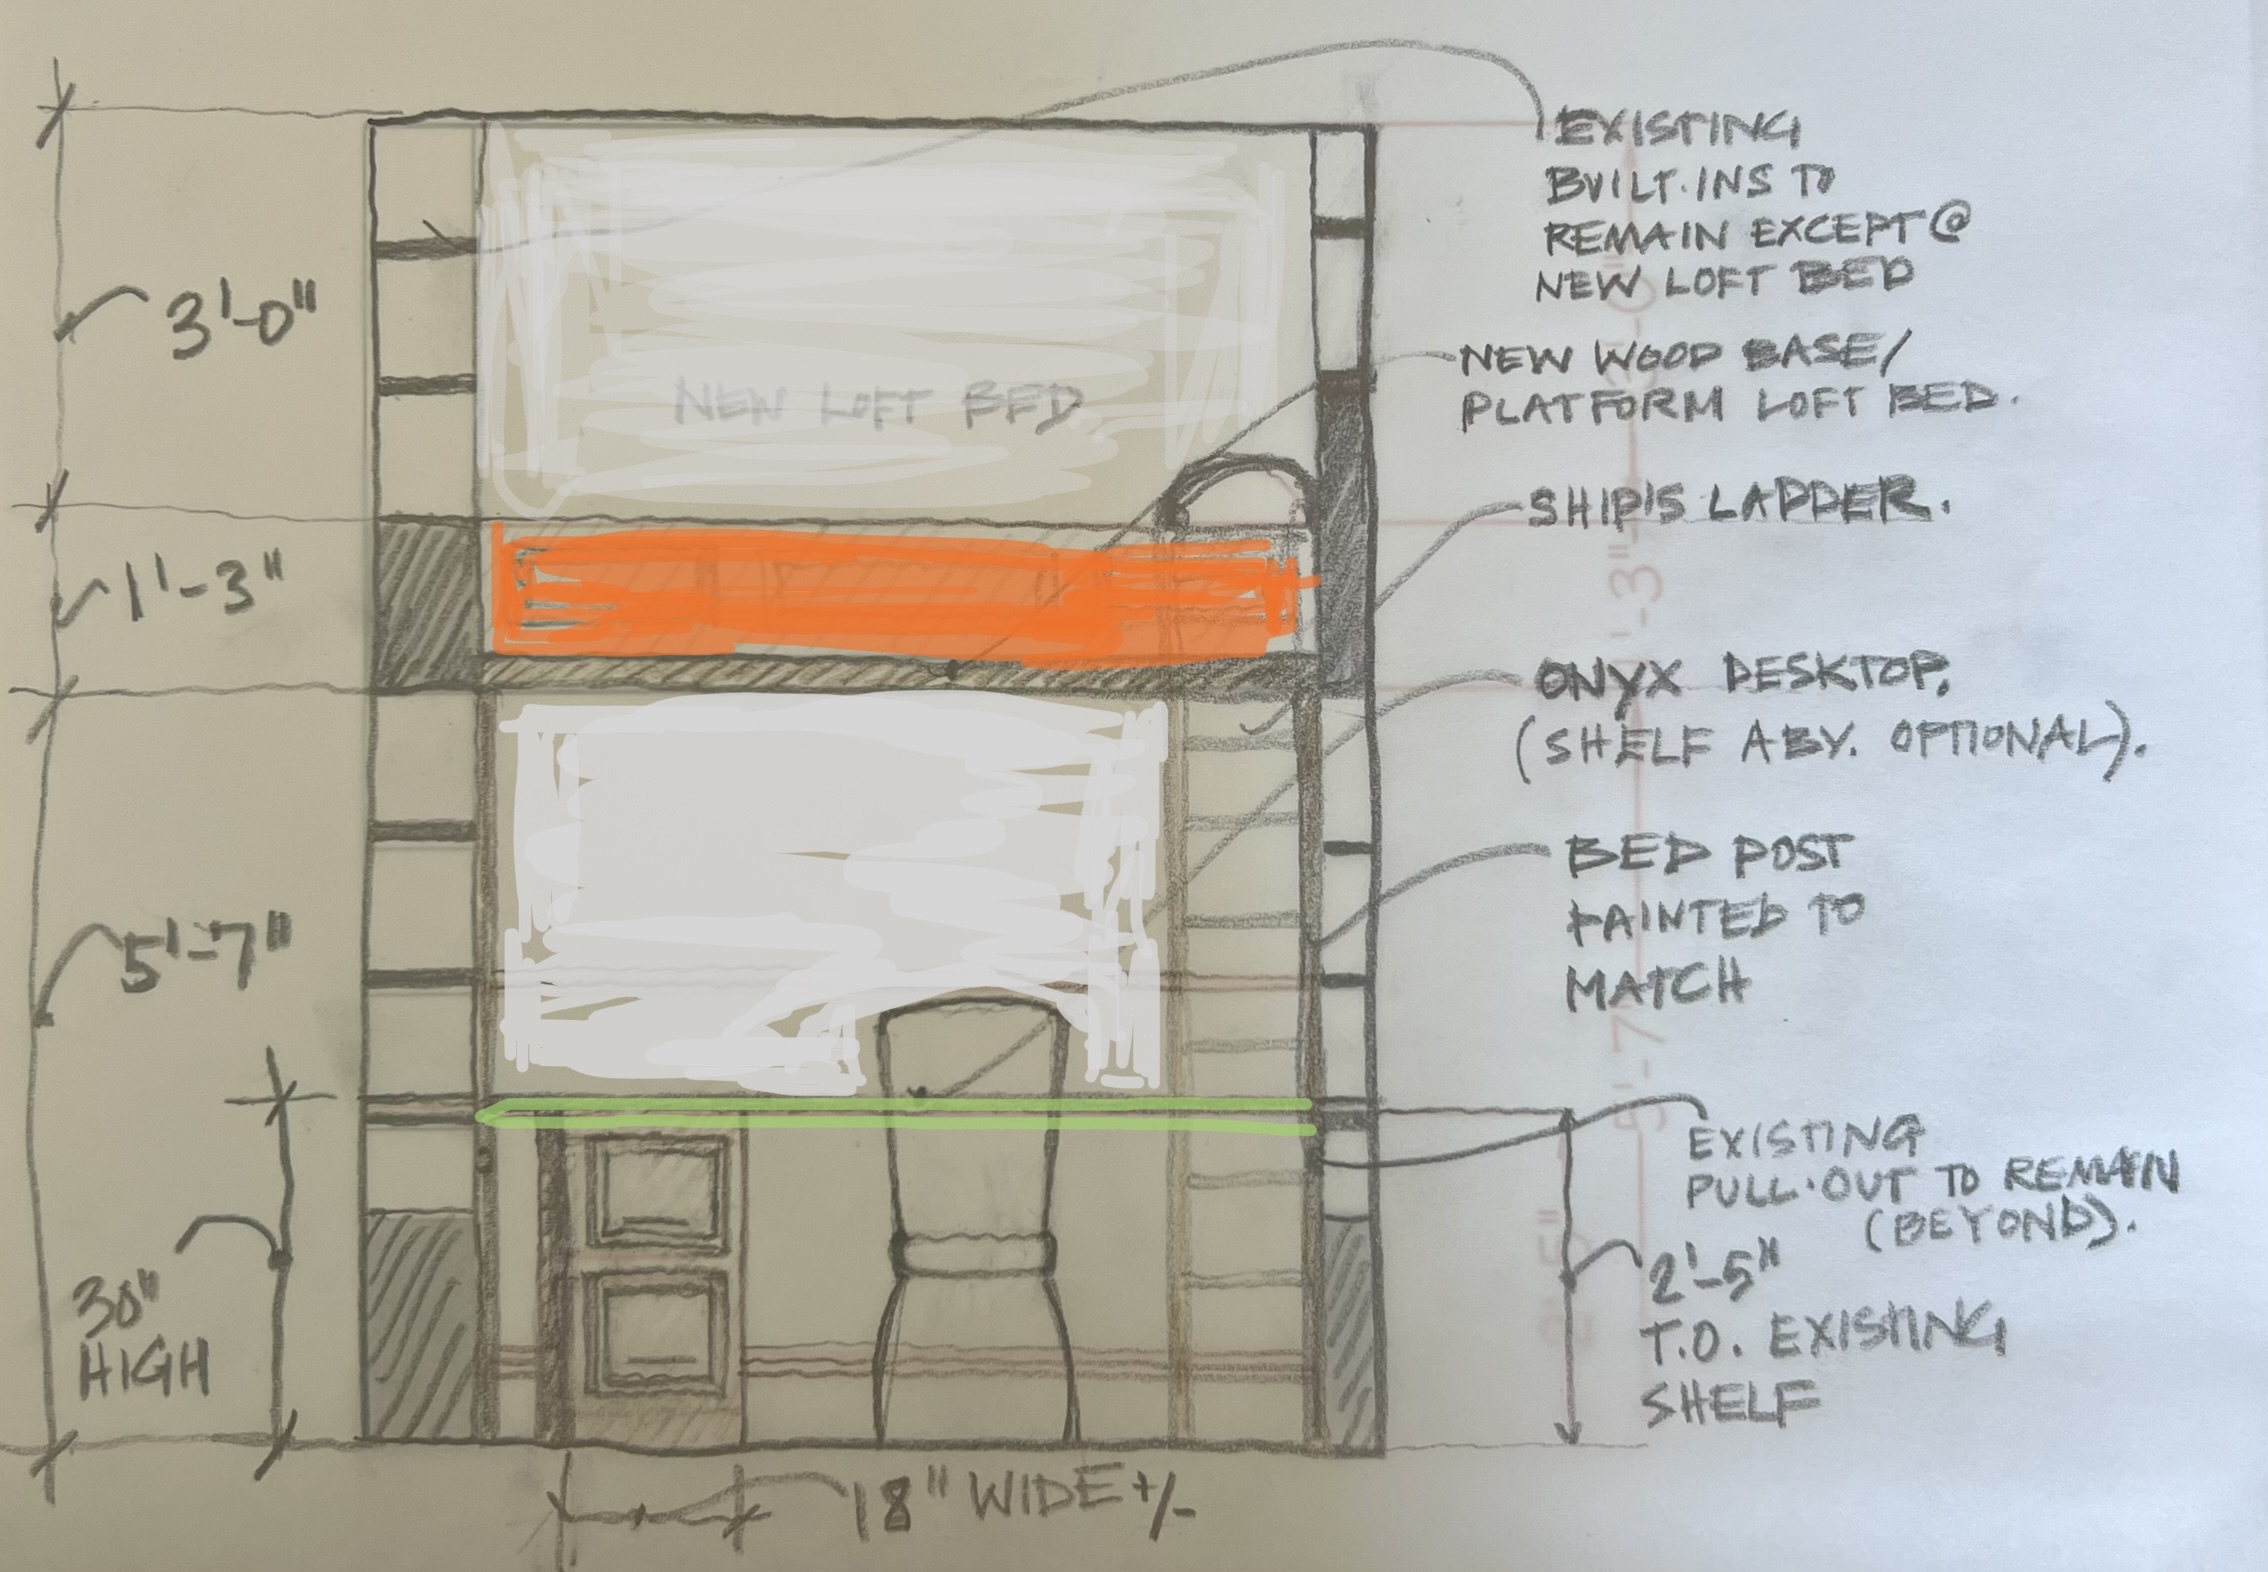 EXISTING
BUILT-INS TO
REMAIN EXCEPT @
NEW LOFT BED
3'-0"
NEW WOOD BASE/
PLATFORM LOFT BED.
NEW LOFT BED
SHIP'S LADDER.
1'-3"
ONYX DESKTOP.
(SHELF ABV. OPTIONAL).
BED POST
PAINTED TO
MATCH
5'-7"
EXISTING
PULL-OUT TO REMAIN
(BEYOND).
2'-5"
T.O. EXISTING
SHELF
30"
HIGH
18" WIDE +/-